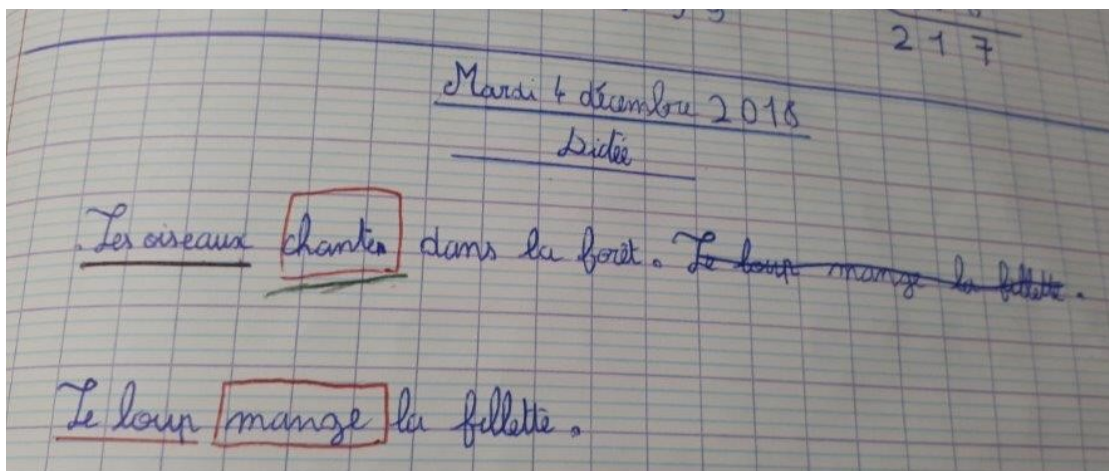 217
Mardi 4 décembre 2018
Dictée
Les oiseaux chanter dans la forêt. Le loup mange la fillette.
Le loup mange la fillette.